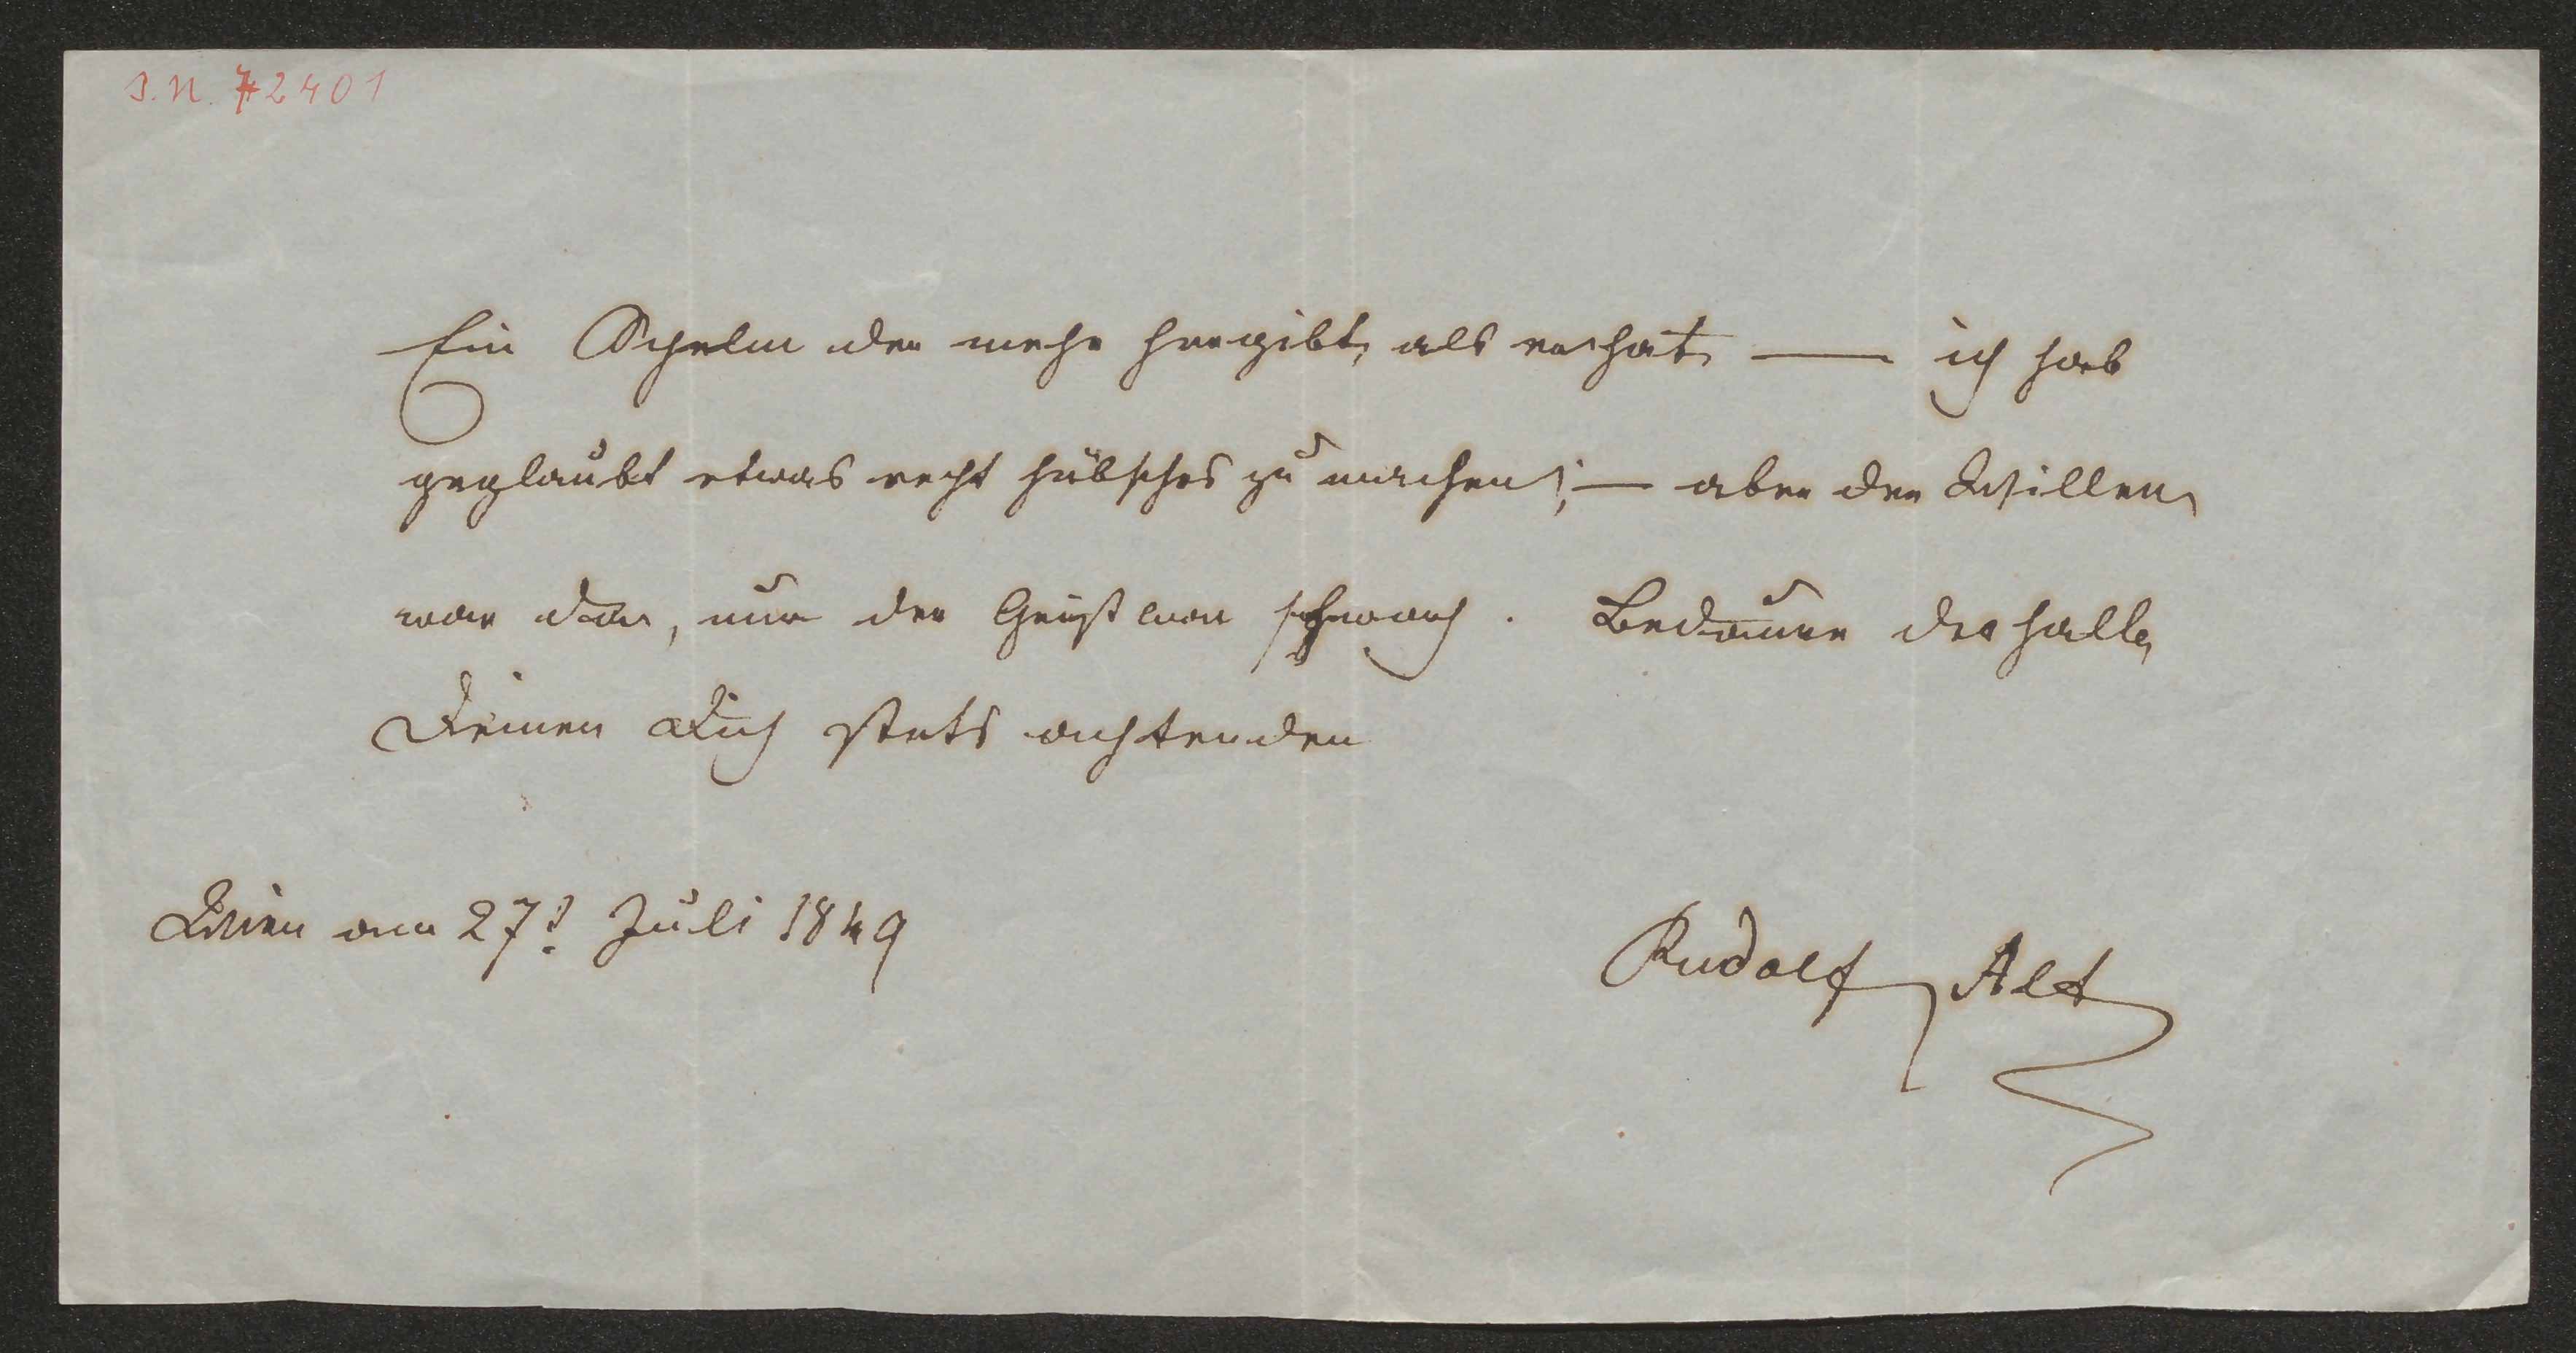 I.N. 72401
Ein Schelm der mehr hergibt, als er hat, — ich hab
geglaubt etwas recht hübsches zu machen; — aber der Willen
war da, nur der Geist war schwach. Bedaure deshalb
Deinen Dich stets achtenden
Wien am 27t Juli 1849
Rudolf Alt